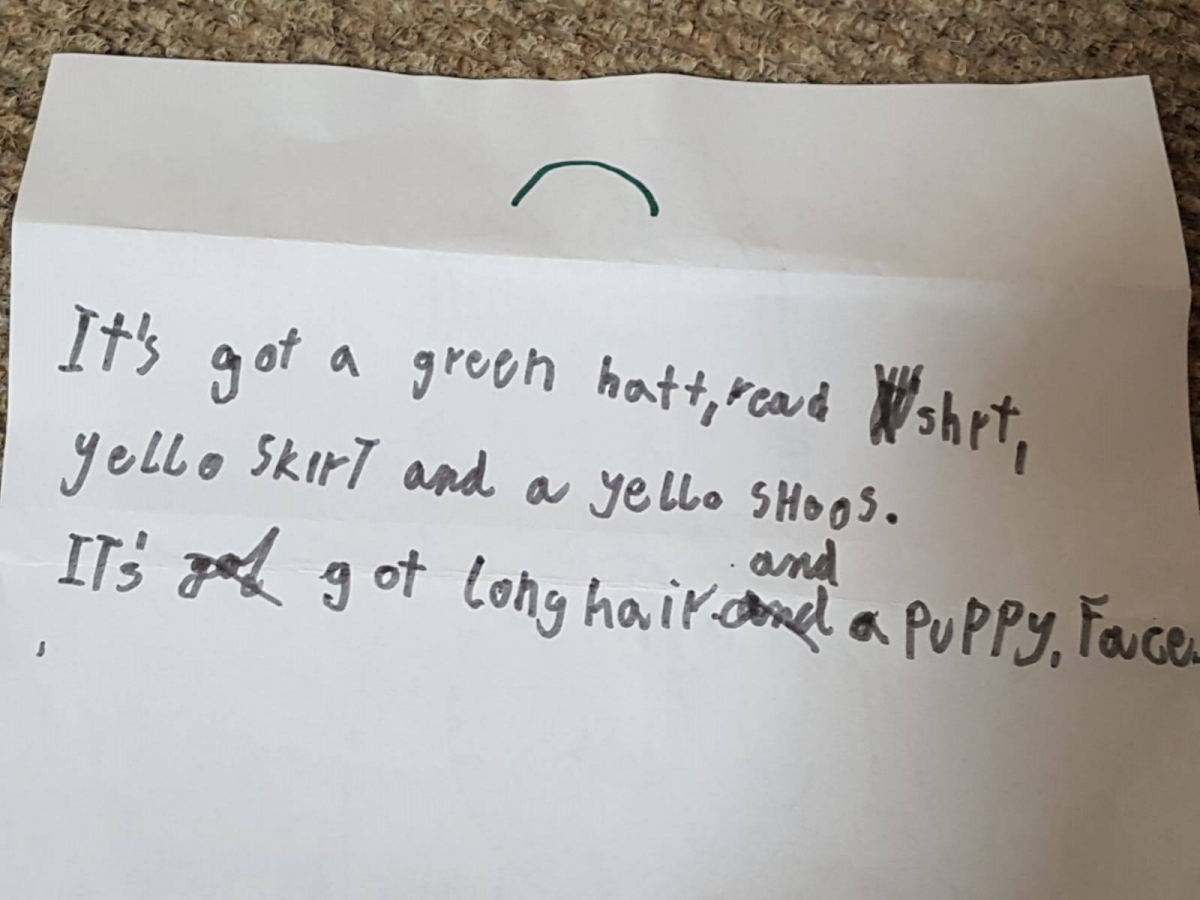 It's got a green hatt, read shrt,
yello SkirT and a yello SHoos.
ITs got long hair and a PuPPy, Face.